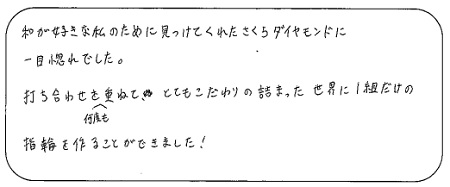 和が好きな私のために見つけてくれたさくらダイヤモンドに
一目惚れでした。
打ち合わせを何度も重ねて、とてもこだわりの詰まった世界に1組だけの
指輪を作ることができました!